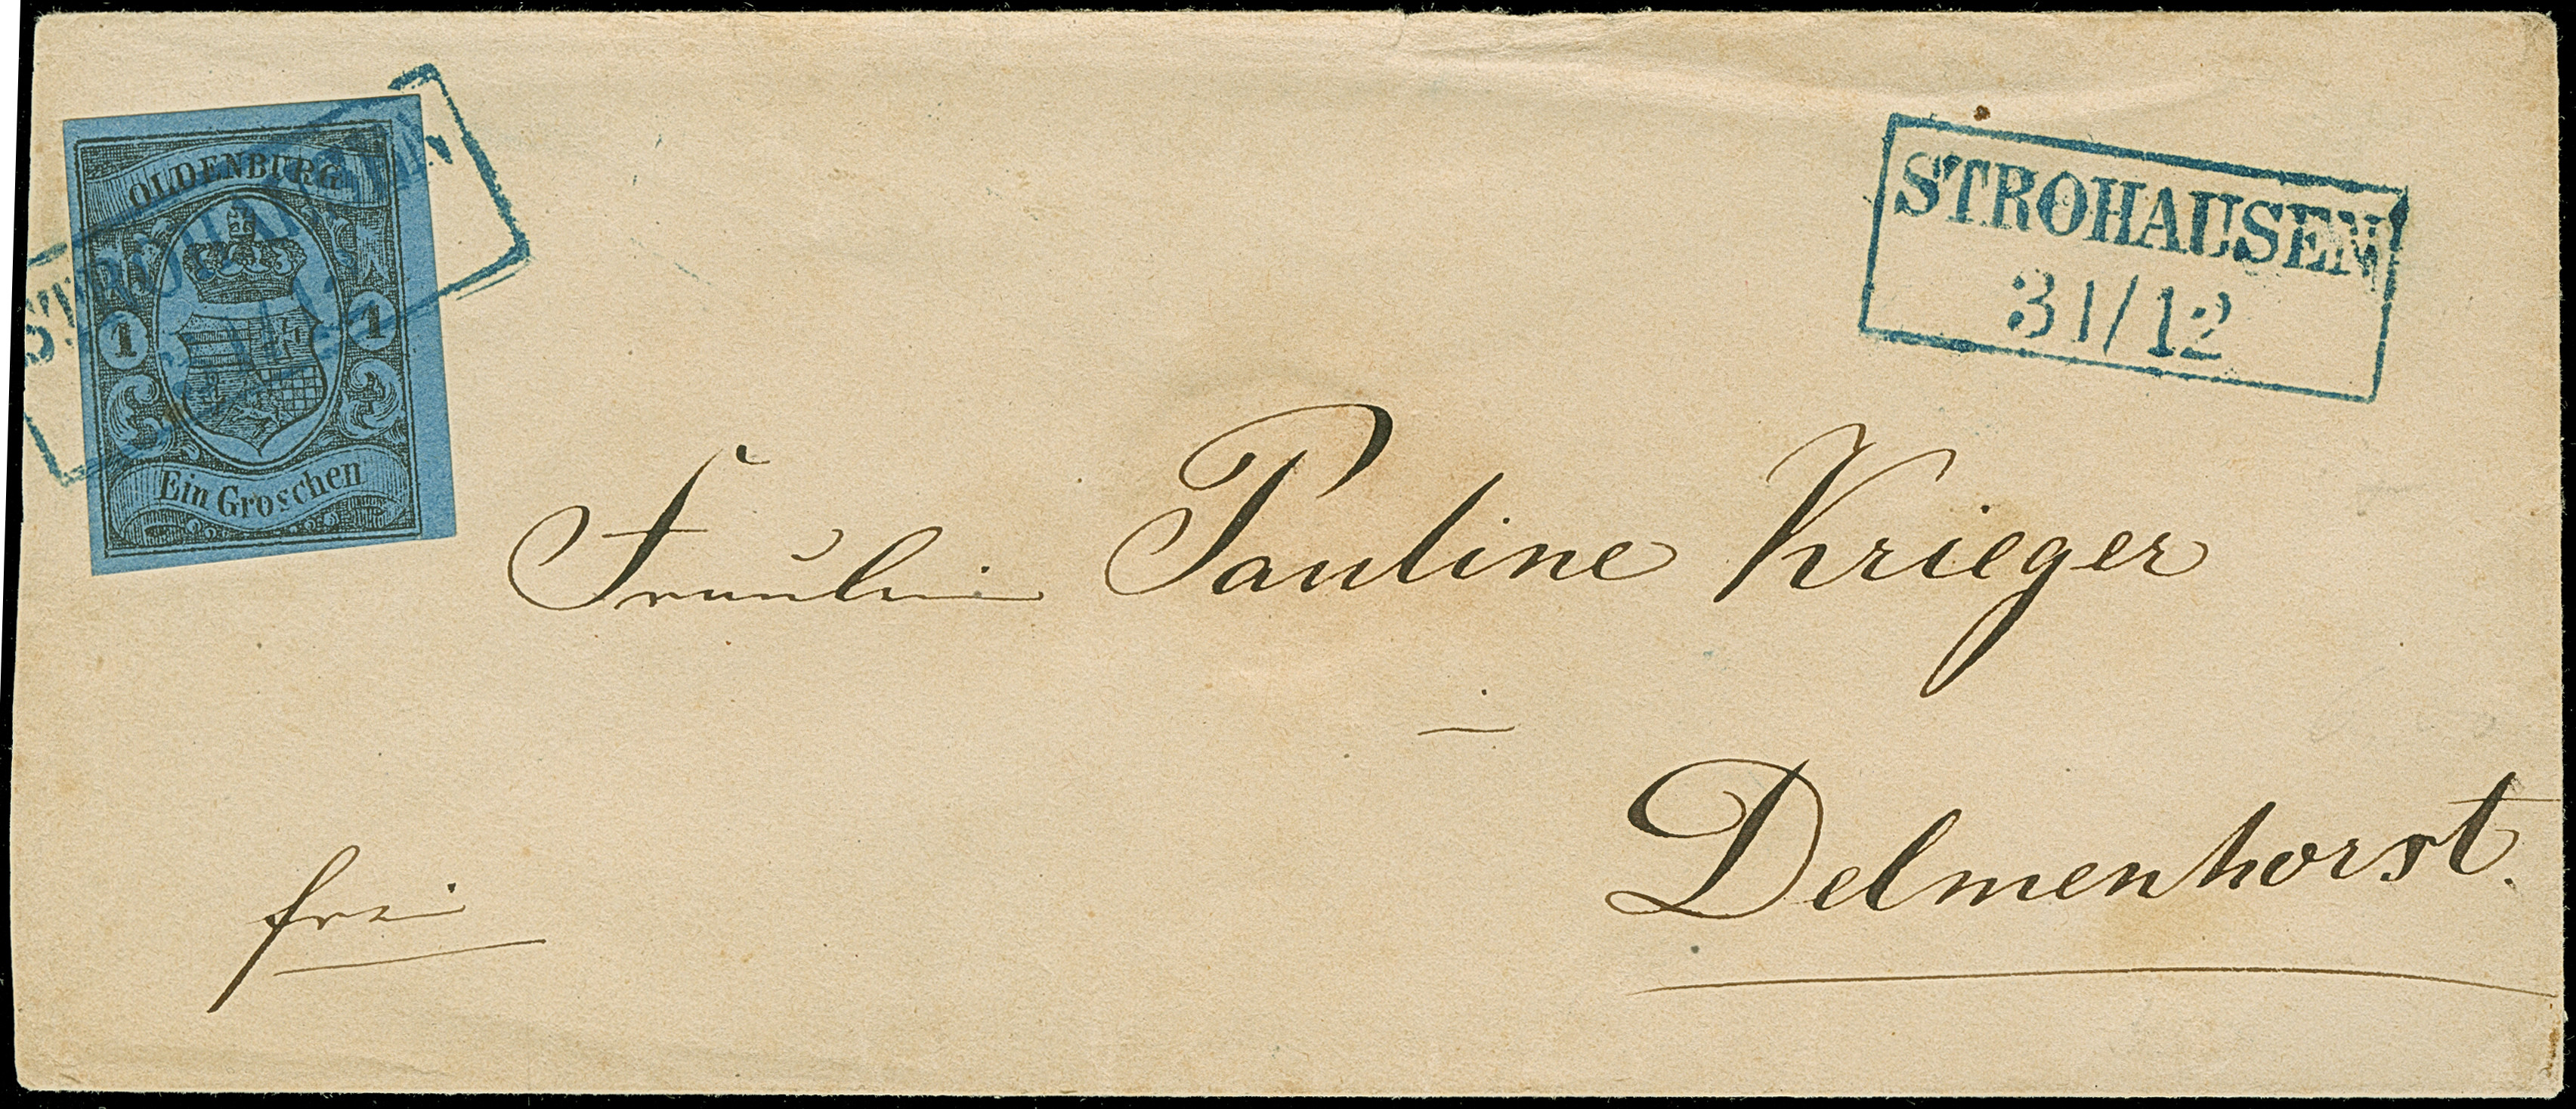 OLDENBURG
1 1
Ein Groschen
STROHAUSEN
31/12
STROHAUSEN
31/12
Fräulein Pauline Krieger
Delmenhorst.
frei